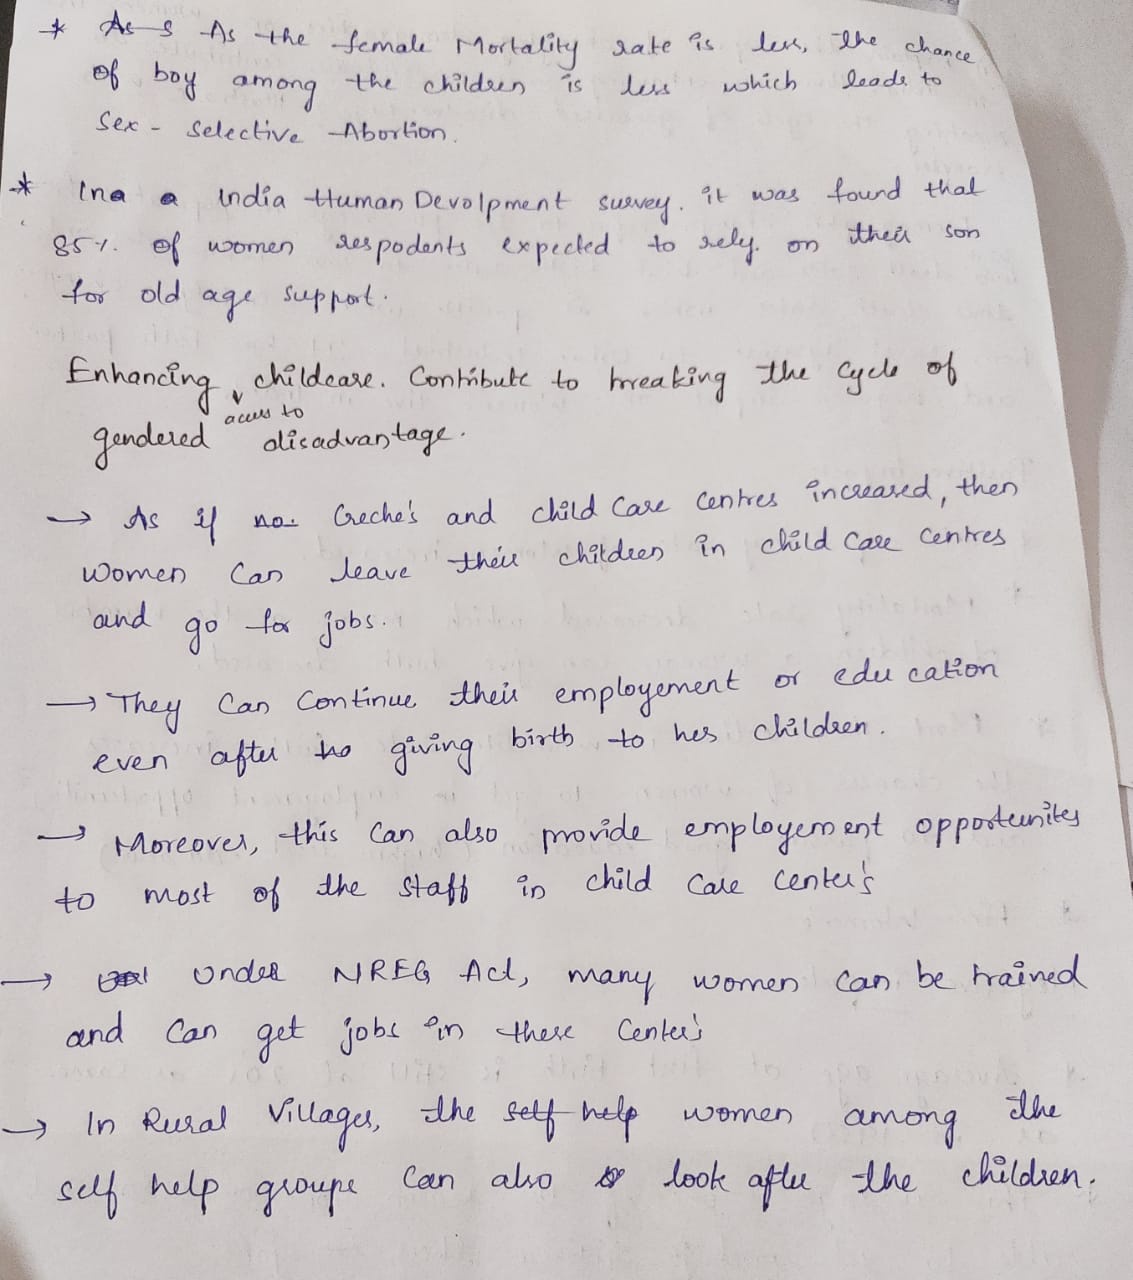 * As As the female Mortality rate is less, the chance
of boy among the children is less which leads to
Sex - Selective Abortion.
* Ina a India Human Devolpment survey. it was found that
85%. of women respodents expected to rely. on their son
for old age support.
Enhancing access to childcare. Contribute to breaking the cycle of
gendered disadvantage.
→ As if no. Creche's and child Care Centres increased, then
Women Can leave their children in child Care Centres
and go for jobs.
→ They Can Continue their employement or education
even after giving birth to her children.
→ Moreover, this Can also provide employement opportunites
to most of the staff in child Care Center's
→ Under NREG Act, many women can be trained
and Can get jobs in these Center's
→ In Rural Villages, the self help women among the
self help groups Can also look after the children.